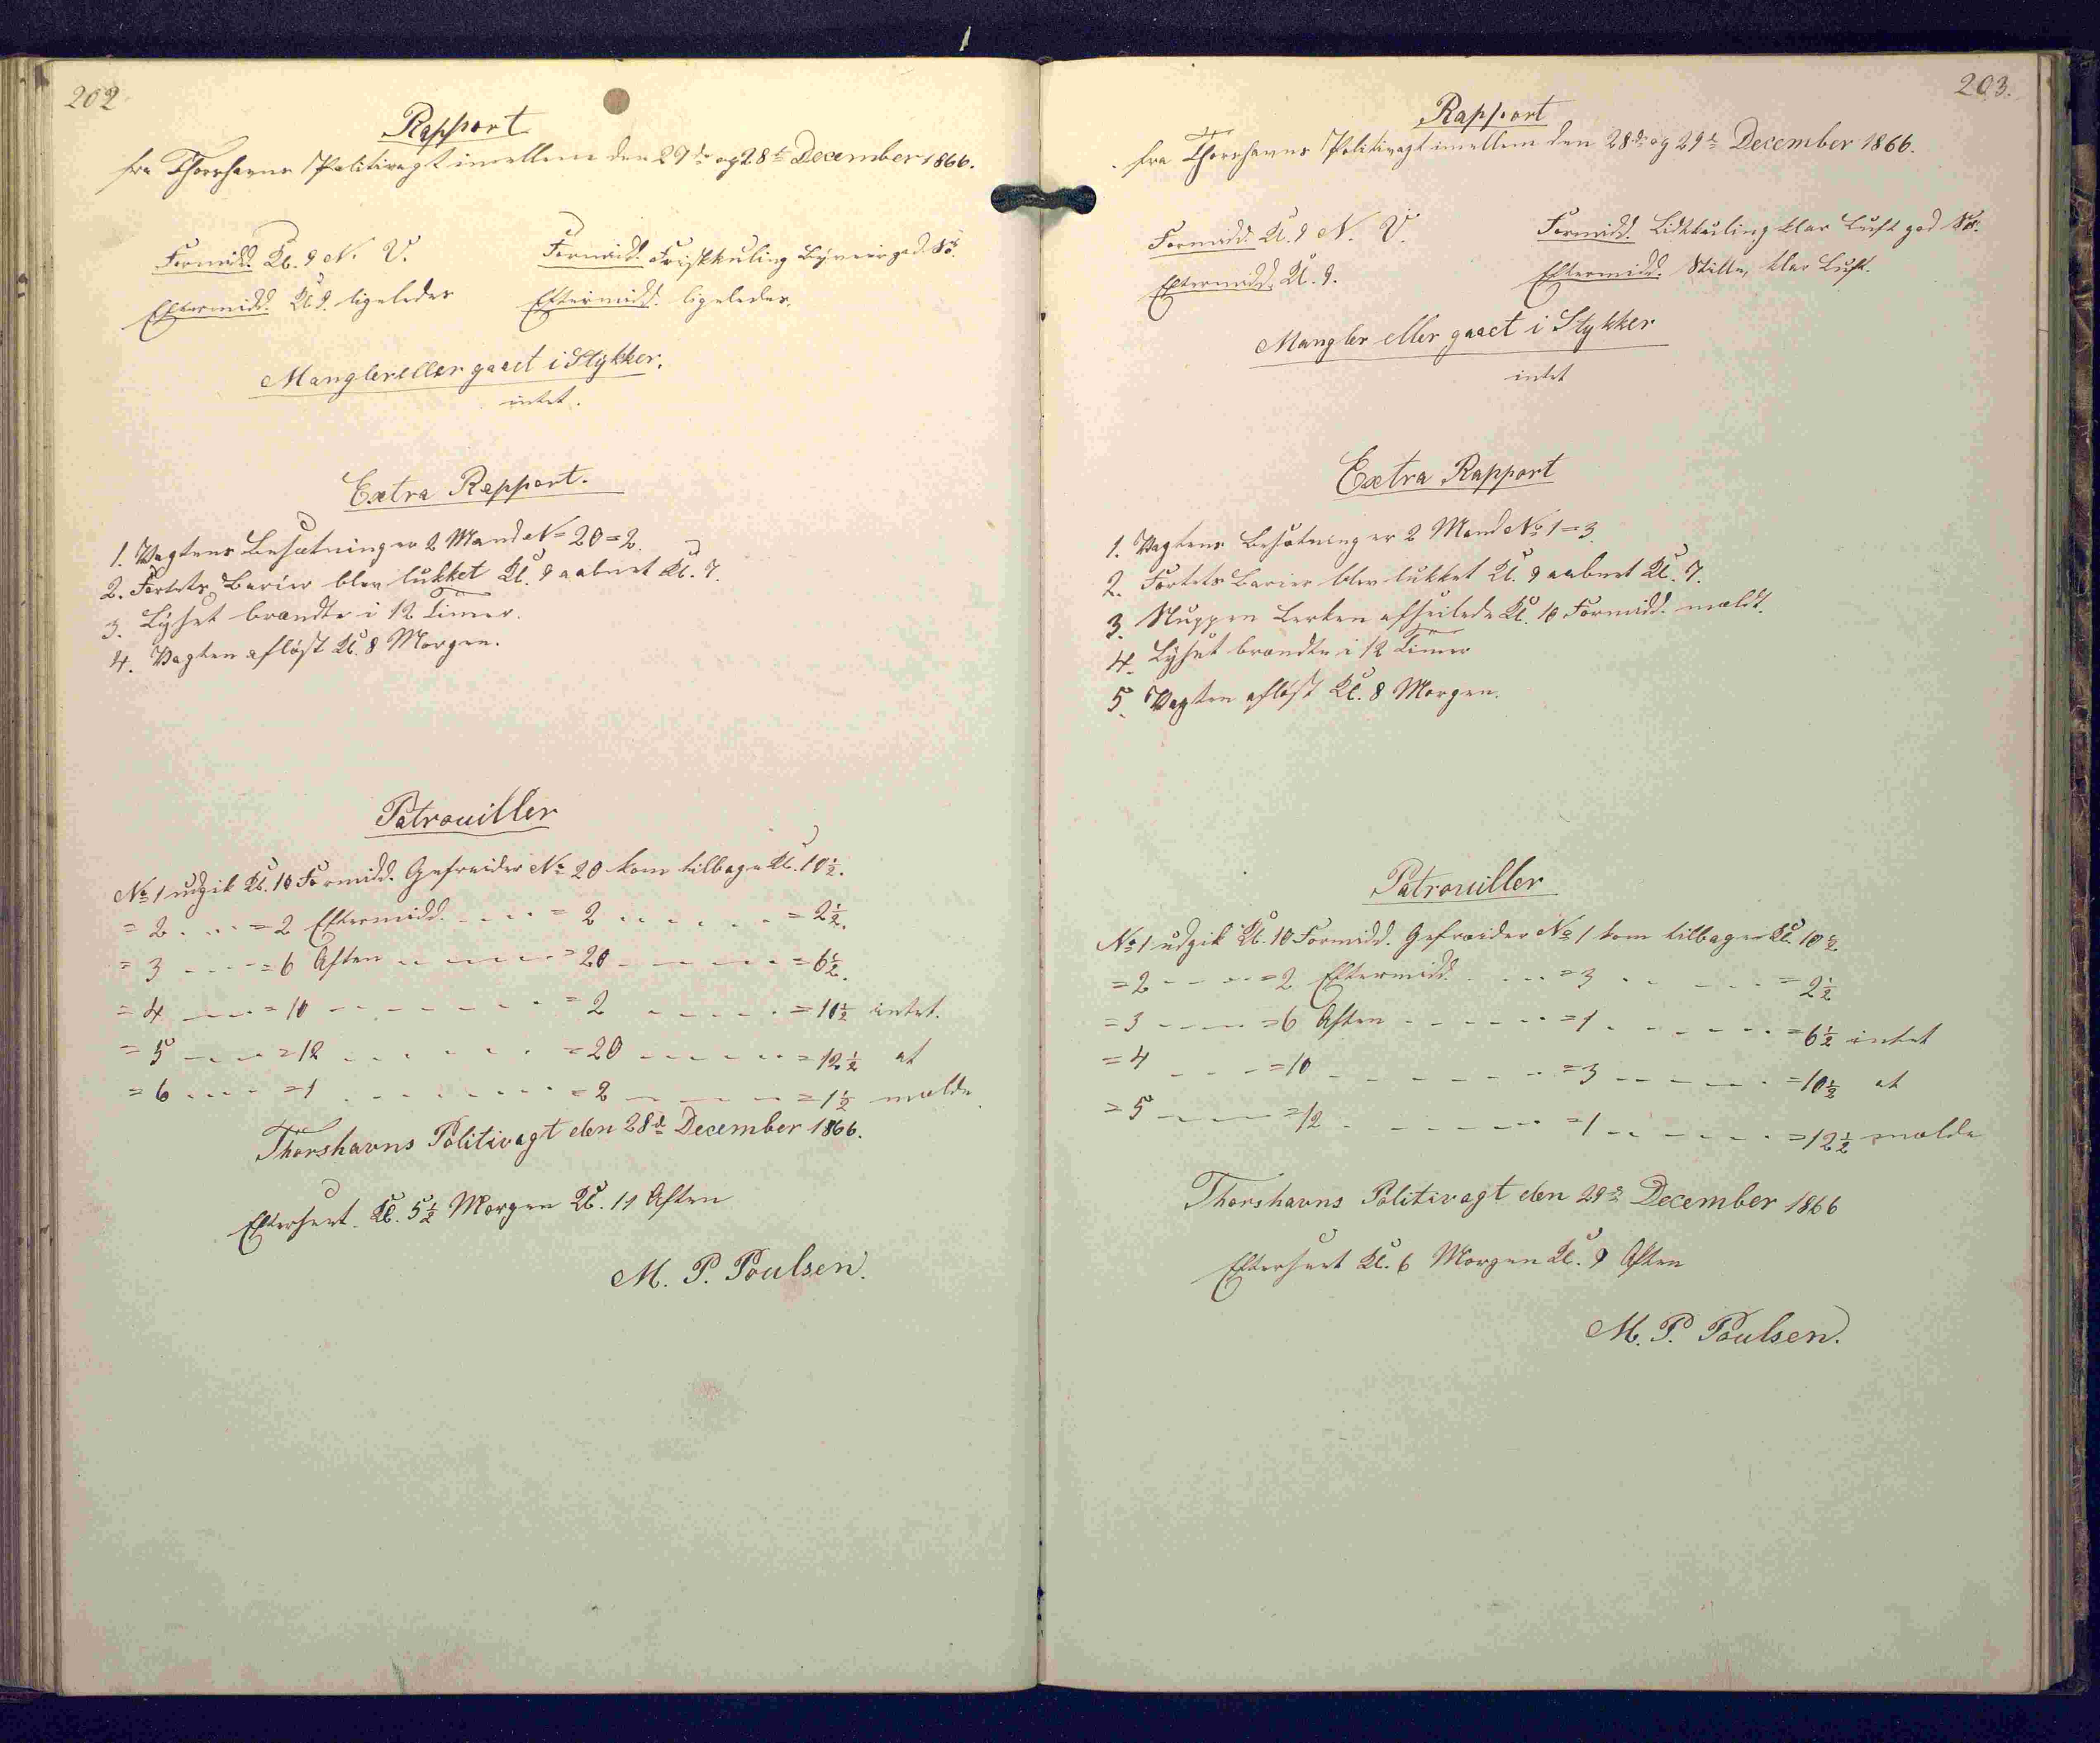 202
Rapport
fra Thorshavns Politivagt imellem den 27de og 28de December 1866.
Formidd. Kl. 9 N. V. Formidd. Friskkuling Byveir god Sø.
Eftermidd. Kl. 9. ligeledes Eftermidd. ligeledes.
Mangler eller gaaet i Stykker.
intet.
Extra Rapport.
1. Vagtens Besætning er 2 Mand No 20 = 2.
2. Fortets Barier blev lukket Kl. 9 aabnet Kl. 7.
3. Lyset brændte i 12 Timer.
4. Vagten afløst Kl. 8 Morgen.
Patrouiller
No 1 udgik Kl. 10 Formidd. Gefreider No 20 kom tilbage Kl. 10½.
= 2 - - - = 2 Eftermidd. - - - = 2 - - - - = 2½.
= 3 - - - = 6 Aften - - - - = 20 - - - - = 6½.
= 4 - - - = 10 - - - - - - = 2 - - - - = 10½ intet.
= 5 - - - = 12 - - - - - - = 20 - - - - = 12½ at
= 6 - - - = 1 - - - - - - = 2 - - - - = 1½ melde.
Thorshavns Politivagt den 28de December 1866.
Efterseet Kl. 5½ Morgen Kl. 11 Aften
M. P. Poulsen.
203.
Rapport
fra Thorshavns Politivagt imellem den 28de og 29de December 1866.
Formidd. Kl. 9 N. V. Formidd. Lidkuling klar Luft god Sø.
Eftermidd. Kl. 9. Eftermidd. Stille, klar Luft.
Mangler eller gaaet i Stykker
intet
Extra Rapport
1. Vagtens Besætning er 2 Mand No 1 = 3.
2. Fortets Barier blev lukket Kl. 9 aabnet Kl. 7.
3. Sluppen Lerken afseilede Kl. 10 Formidd. meldt.
4. Lyset brændte i 12 Timer
5. Vagten afløst Kl. 8 Morgen.
Patrouiller
No 1 udgik Kl. 10 Formidd. Gefreider No 1 kom tilbage Kl. 10½
= 2 - - - = 2 Eftermidd. - - - = 3 - - - - = 2½
= 3 - - - = 6 Aften - - - - = 1 - - - - = 6½ intet
= 4 - - - = 10 - - - - - - = 3 - - - - = 10½ at
= 5 - - - = 12 - - - - - - = 1 - - - - = 12½ melde
Thorshavns Politivagt den 29de December 1866
Efterseet Kl. 6 Morgen Kl. 9 Aften
M. P. Poulsen.